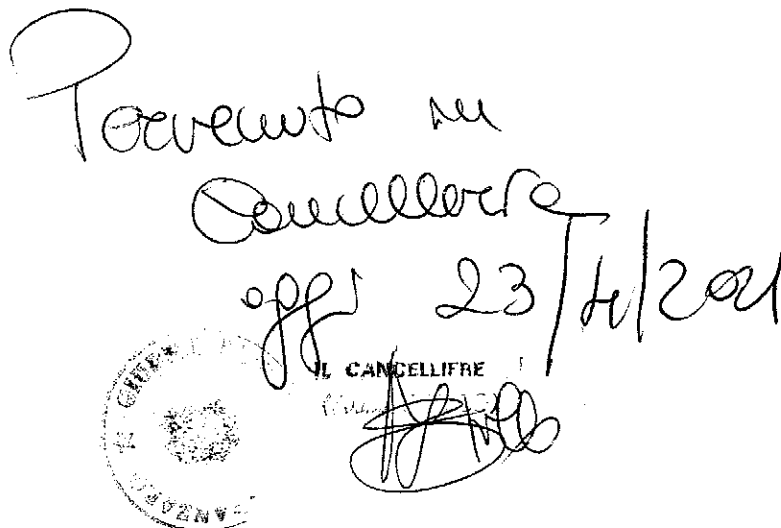 Pervenuto in
Cancelleria
oggi 23/4/2021
IL CANCELLIERE